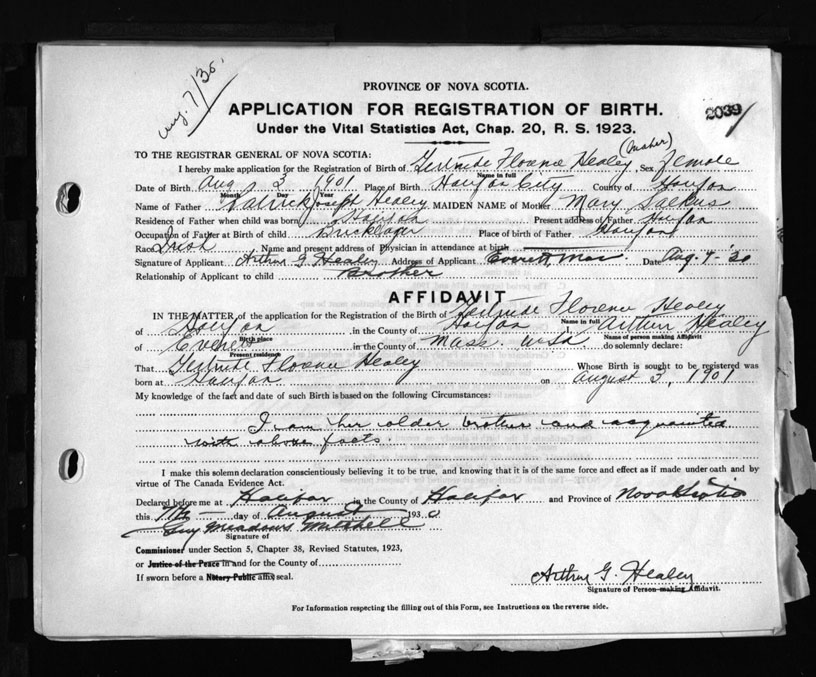 Aug. 7/30.
PROVINCE OF NOVA SCOTIA.
APPLICATION FOR REGISTRATION OF BIRTH.
2039
Under the Vital Statistics Act, Chap. 20, R. S. 1923.
TO THE REGISTRAR GENERAL OF NOVA SCOTIA:
(Maher)
I hereby make application for the Registration of Birth of Gertrude Florence Healey Sex Female
Name in full
Date of Birth Aug 3 1901 Place of Birth Halifax City County of Halifax
Month Day Year
Name of Father Patrick Joseph Healey MAIDEN NAME of Mother Mary
Residence of Father when child was born Halifax Present address of Father Halifax
Occupation of Father at Birth of child Bricklayer Place of birth of Father Halifax
Race Irish Name and present address of Physician in attendance at birth
Signature of Applicant Arthur G. Healey Address of Applicant Everett, Mass. Date Aug. 7-'30
Relationship of Applicant to child Brother
AFFIDAVIT
IN THE MATTER of the application for the Registration of the Birth of Gertrude Florence Healey
Name in full
of Halifax in the County of Halifax I, Arthur Healey
Birth place Name of person making Affidavit
of Everett in the County of Mass. USA do solemnly declare:
Present residence
That Gertrude Florence Healey Whose Birth is sought to be registered was
born at Halifax on August 3, 1901
My knowledge of the fact and date of such Birth is based on the following Circumstances:
I am her older brother and acquainted
with above facts.
I make this solemn declaration conscientiously believing it to be true, and knowing that it is of the same force and effect as if made under oath and by
virtue of The Canada Evidence Act.
Declared before me at Halifax in the County of Halifax and Province of Nova Scotia
this 7th day of August 1930
Guy Meadows Mitchell
Signature of
Commissioner under Section 5, Chapter 38, Revised Statutes, 1923,
or Justice of the Peace in and for the County of
If sworn before a Notary Public affix seal.
Arthur G. Healey
Signature of Person making Affidavit.
For Information respecting the filling out of this Form, see Instructions on the reverse side.